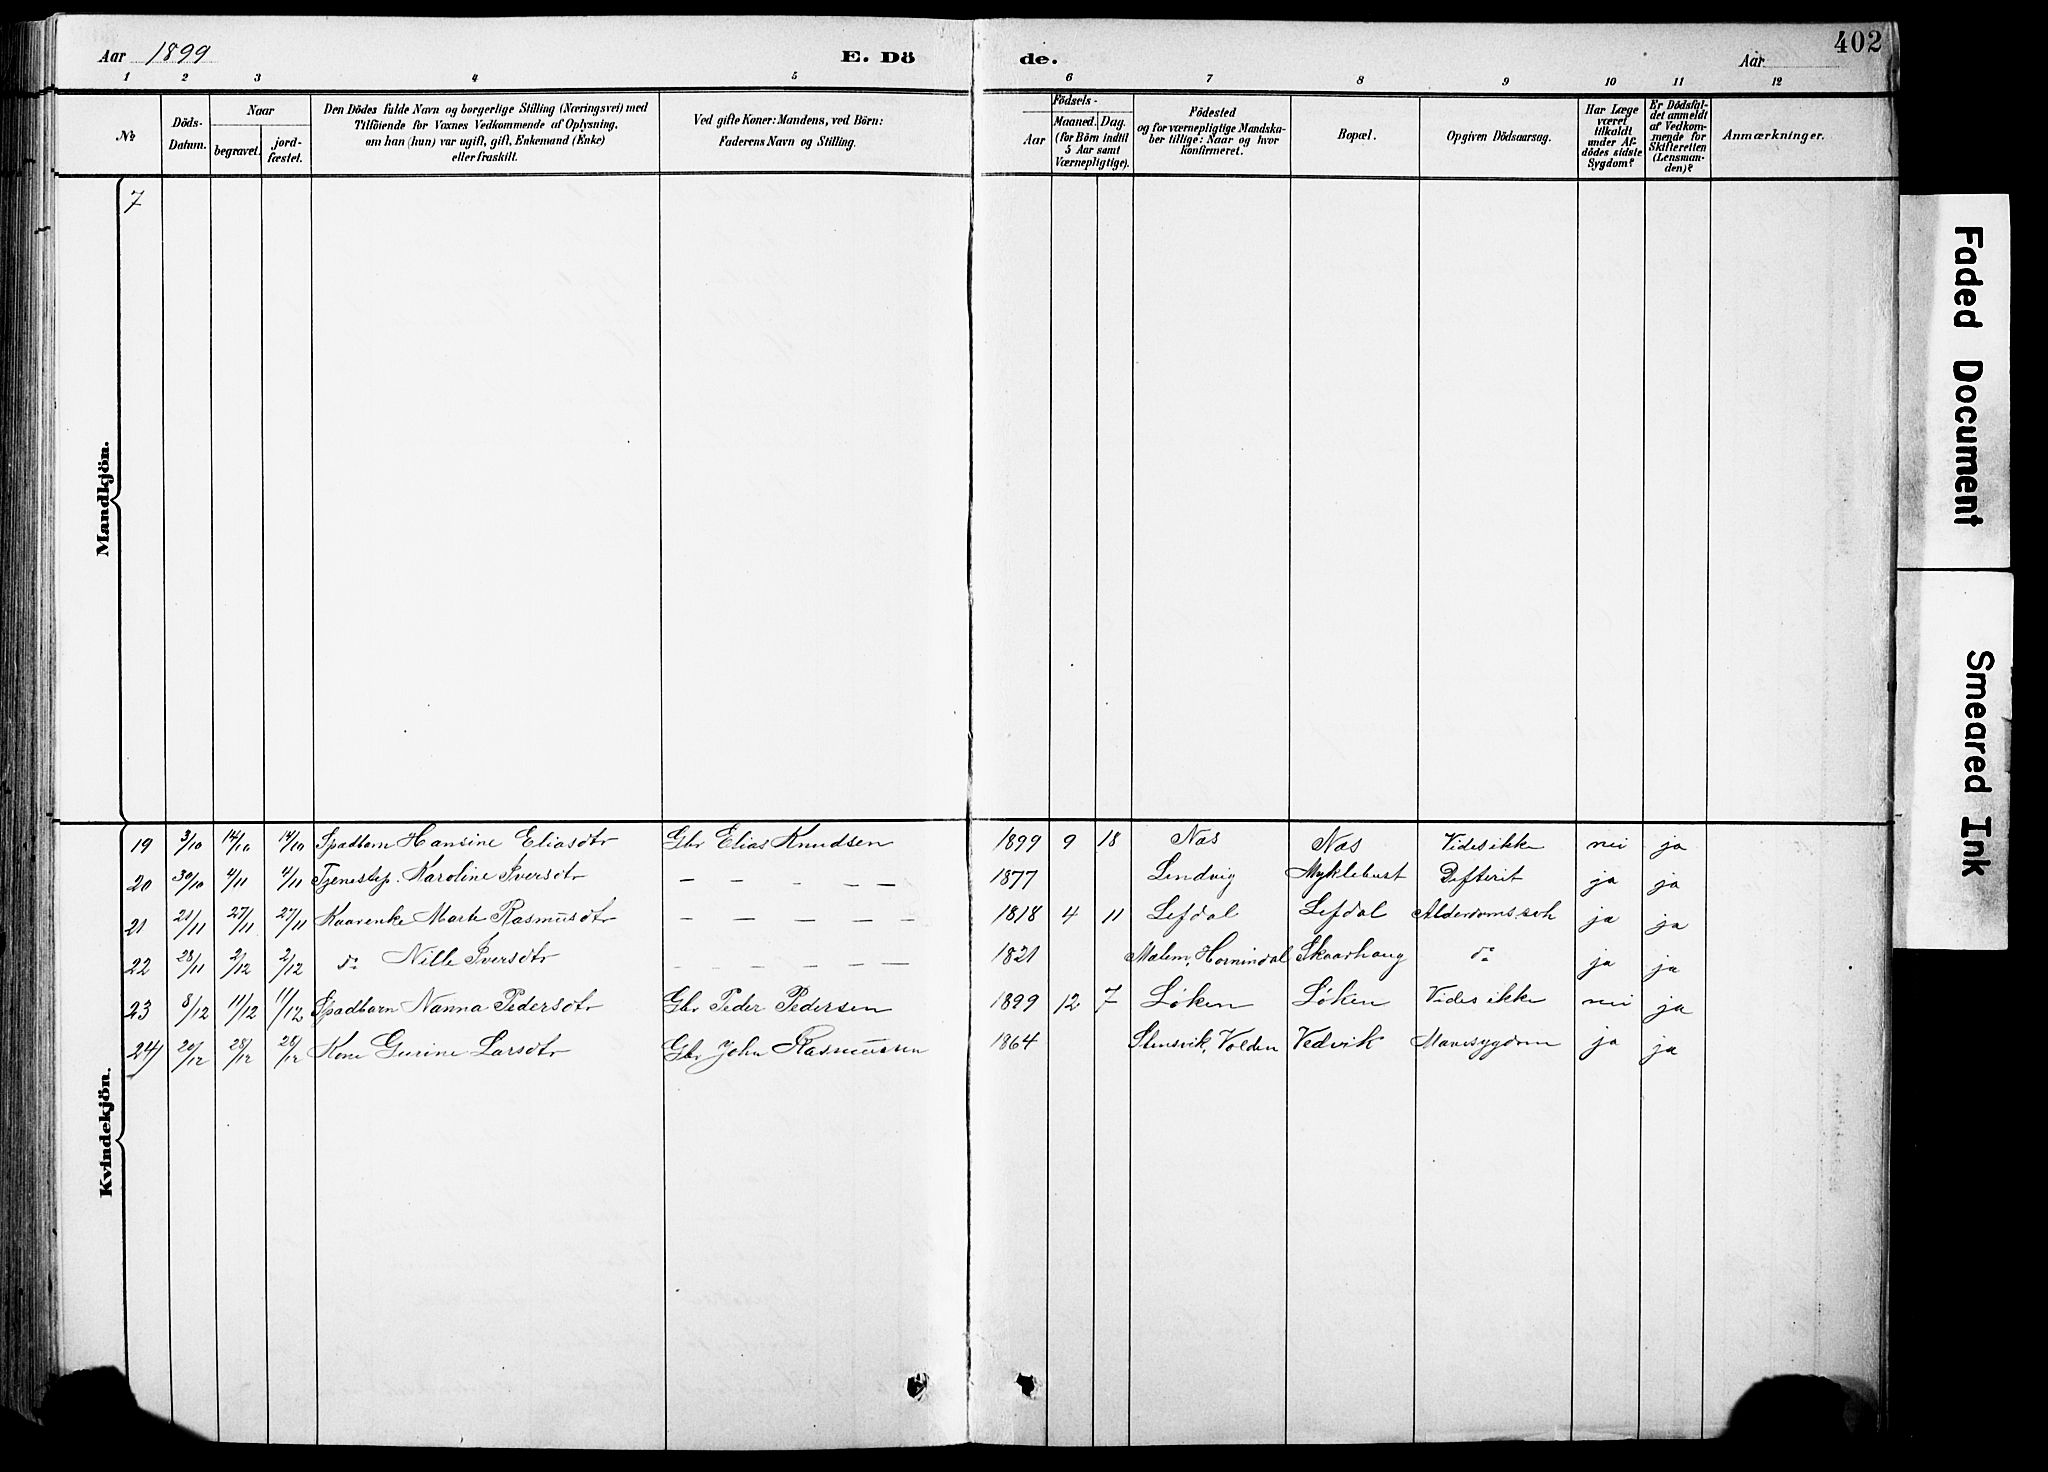 Aar 1899 E. Dö de. Aar 402
1 2 3 4 5 6 7 8 9 10 11 12
No
Döds-Datum.
Naar
begravet. jord-fæstet.
Den Dödes fulde Navn og borgerlige Stilling (Næringsvei) med
Tilföiende for Voxnes Vedkommende af Oplysning,
om han (hun) var ugift, gift, Enkemand (Enke)
eller fraskilt.
Ved gifte Koner: Mandens, ved Börn:
Faderens Navn og Stilling.
Födsels-
Aar Maaned. Dag.
(for Börn indtil
5 Aar samt
Værnepligtige).
Födested
og for værnepligtige Mandska-
ber tillige: Naar og hvor
konfirmeret.
Bopæl.
Opgiven Dödsaarsag.
Har Læge
været
tilkaldt
under Af-
dödes sidste
Sygdom?
Er Dödsfal-
det anmeldt
af Vedkom-
mende for
Skifteretten
(Lensman-
den)?
Anmærkninger.
7
Mandkjön.
Kvindekjön.
19 3/10 14/10 14/10 Spadbarn Hansine Eliasdtr Gbr Elias Knudsen 1899 9 18 Nos Nos Vides ikke nei ja
20 30/10 4/11 4/11 Tjenestep. Karoline Iversdtr — — — — 1877 Lendvig Myklebust Difterit ja ja
21 21/11 27/11 27/11 Kaarenke Marte Rasmusdtr — — — — — 1818 4 11 Lefdal Lefdal ja ja
22 28/11 2/12 2/12 do Nille Iversdtr — — — — — 1821 Malem, Hornindal Skaarhaug do ja ja
23 8/12 11/12 11/12 Spadbarn Nanna Pedersdtr Gbr Peder Pedersen 1899 12 7 Løken Løken Vides ikke nei ja
24 20/12 28/12 28/12 Kone Gurine Larsdtr Gbr John Rasmussen 1864 Stensvik, Volden Vedvik Mavesygdom ja ja
Faded Document
Smeared Ink